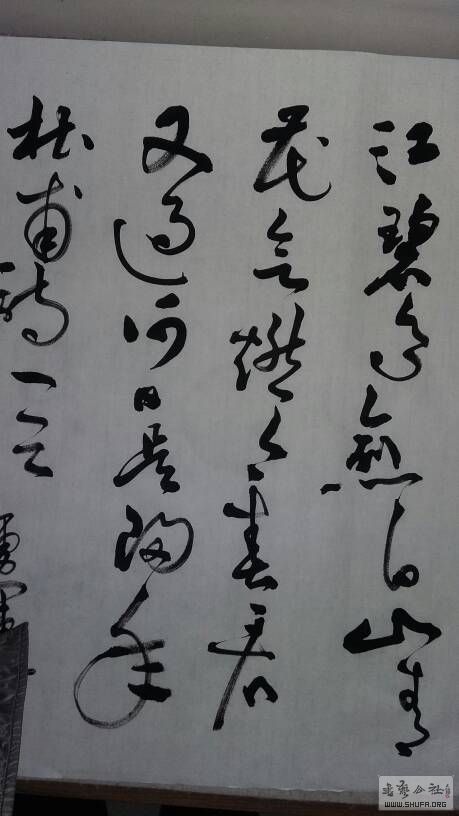 江碧鳥愈白山青
花欲燃今春看
又過何日是歸年
杜甫詩一首
書藝公社
WWW.SHUFA.ORG